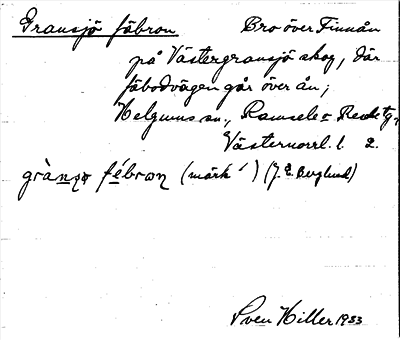 Gransjö fäbron Bro över Finnån
på Västergransjö skog, där
fäbodvägen går över ån;
Helgums sn, Ramsele o Resele tg,
Västernorrl. l. 2.
grànʃø fébron (märk ´) (J. E. Berglund)
Sven Hiller 1933